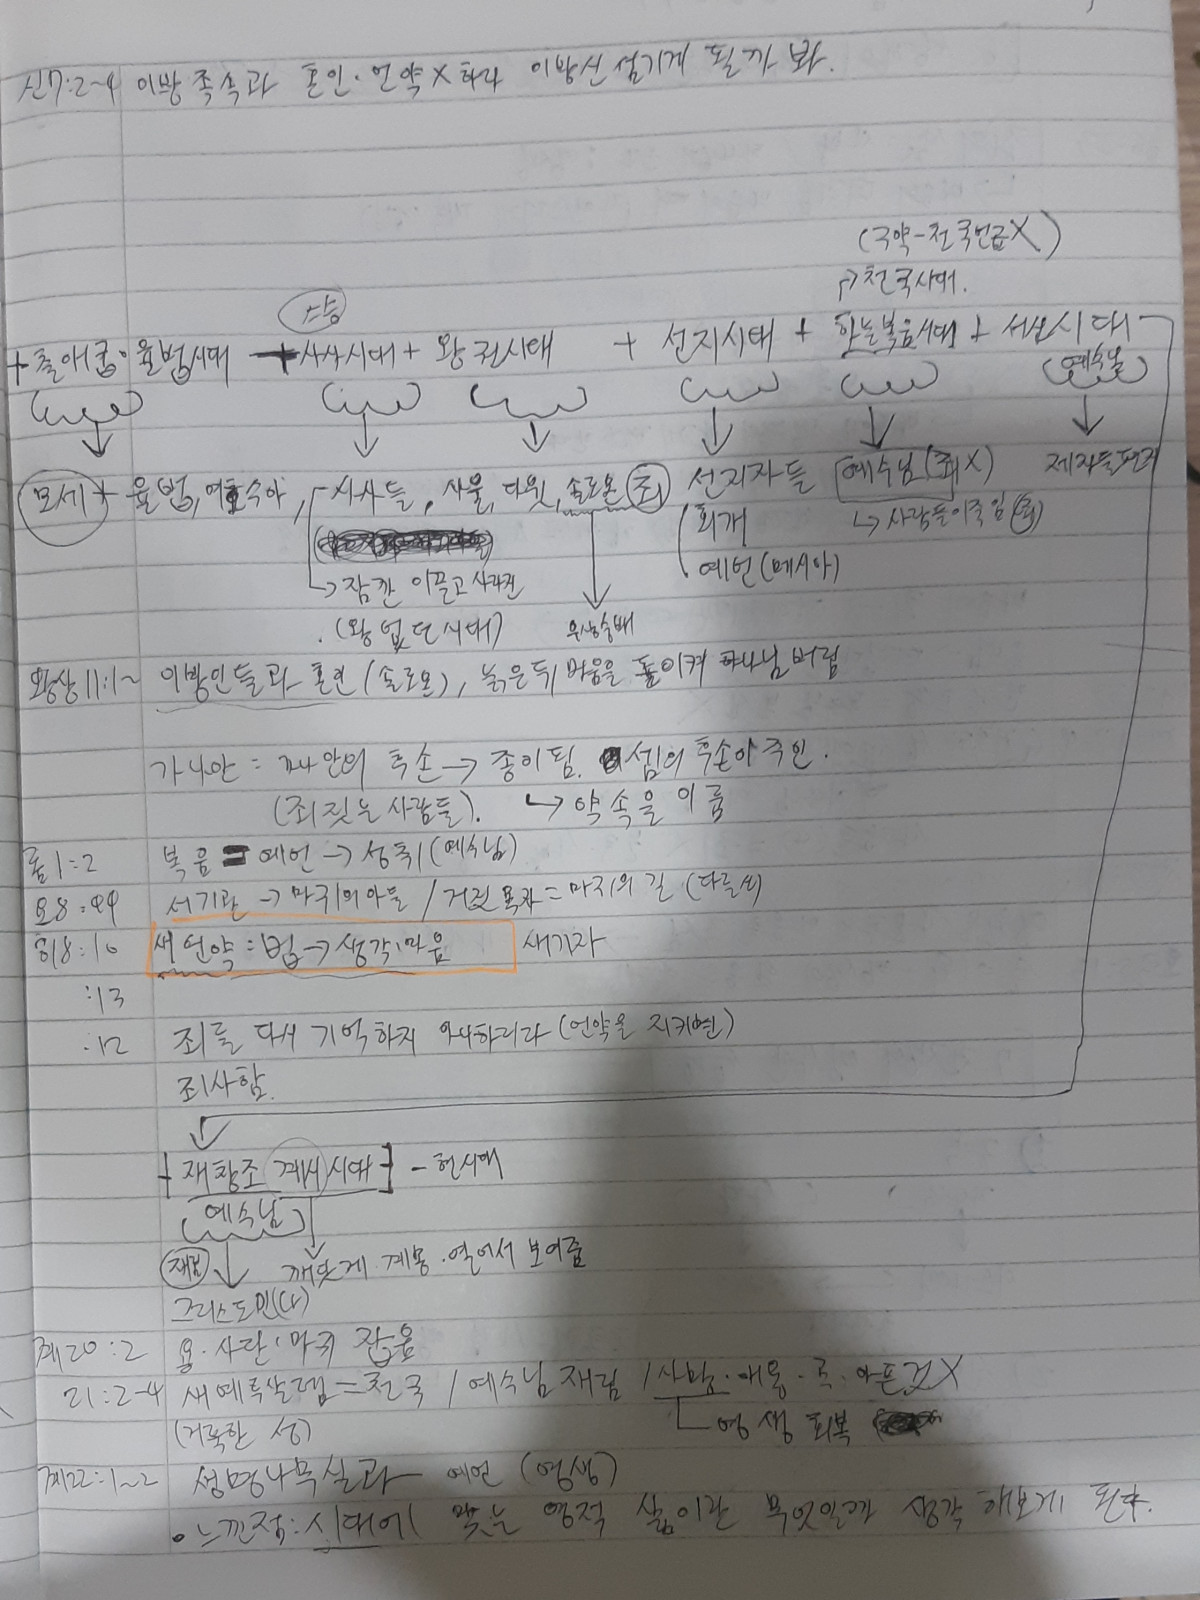 신7:2~4 이방 족속과 혼인·언약X하라 이방신 섬기게 될까 봐.
(구약-천국언급X)
→천국시대.
스승
+출애굽·율법시대 +사사시대+ 왕권시대 + 선지시대 + 하늘복음시대 + 서신시대
(예수님)
모세+ 율법, 여호수아, 사사들, 사울, 다윗, 솔로몬(죄) 선지자들 예수님(죄X) 제자들편지
회개 ↳사람들이죽임(죄)
예언(메시아)
→잠깐 이끌고 사라진
(왕 없던 시대) 우상숭배
왕상11:1~ 이방인들과 혼인(솔로몬), 늙은뒤 마음을 돌이켜 하나님 버림
가나안 = 가나안의 후손 → 종이됨. 셈의 후손이 주인.
(죄짓는 사람들). ↳ 약속을 이룸
롬1:2 복음 = 예언 → 성취(예수님)
요8:44 서기관 → 마귀의아들 / 거짓 목자=마귀의 길 (다른씨)
히8:10 새언약 : 법 → 생각·마음 새기자
:13
:12 죄를 다시 기억하지 아니하리라 (언약을 지키면)
죄사함.
재창조 계시시대 - 현시대
(예수님)
깨닫게 계몽·열어서 보여줌
그리스도인(나)
계20:2 용·사단·마귀 잡음
21:2-4 새예루살렘=천국 / 예수님재림 / 사망·애통·곡·아픈것X
(거룩한 성) 영생 회복
계22:1~2 생명나무실과 - 예언 (영생)
• 느낀점: 시대에 맞는 영적 삶이란 무엇일까 생각 해보게 된다.